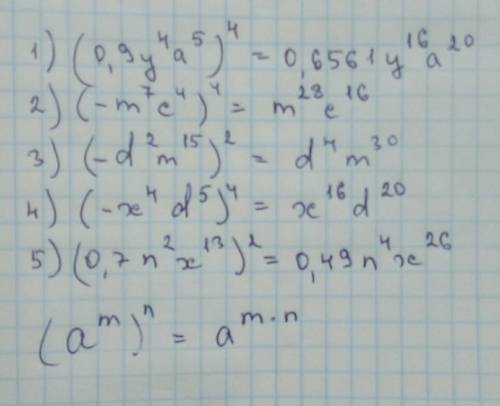 1) (0,9y⁴a⁵)⁴ = 0,6561y¹⁶a²⁰
2) (-m⁷c⁴)⁴ = m²⁸c¹⁶
3) (-d²m¹⁵)² = d⁴m³⁰
4) (-x⁴d⁵)⁴ = x¹⁶d²⁰
5) (0,7n²x¹³)² = 0,49n⁴x²⁶
(aᵐ)ⁿ = aᵐ·ⁿ